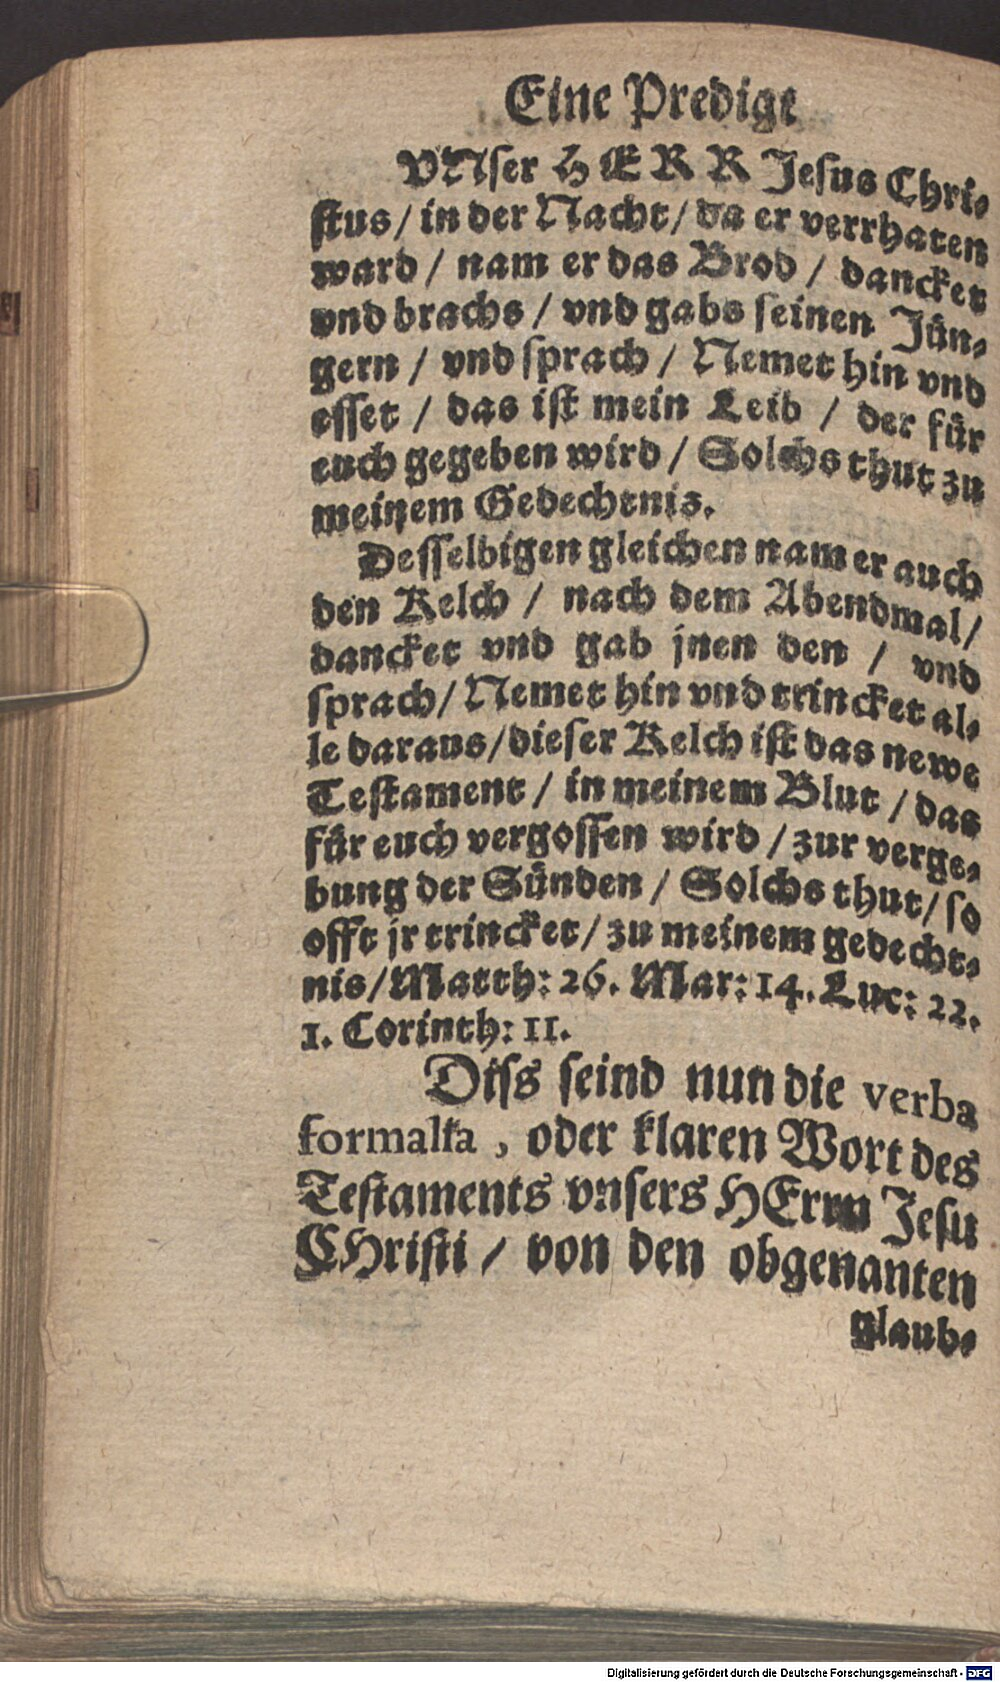 Eine Predigt
VNser HERR Jesus Chri-
stus / in der Nacht / da er verrhaten
ward / nam er das Brod / dancket
vnd brachs / vnd gabs seinen Jün-
gern / vnd sprach / Nemet hin vnd
esset / das ist mein Leib / der für
euch gegeben wird / Solchs thut zu
meinem Gedechtnis.
Desselbigen gleichen nam er auch
den Kelch / nach dem Abendmal /
dancket vnd gab jnen den / vnd
sprach / Nemet hin vnd trincket al-
le daraus / dieser Kelch ist das newe
Testament / in meinem Blut / das
für euch vergossen wird / zur verge-
bung der Sünden / Solchs thut / so
offt jr trincket / zu meinem gedecht-
nis / Matth: 26. Mar: 14. Luc: 22.
1. Corinth: 11.
Diss seind nun die verba
formalia, oder klaren Wort des
Testaments vnsers HErrn Jesu
CHristi / von den obgenanten
glaub-
Digitalisierung gefördert durch die Deutsche Forschungsgemeinschaft - DFG